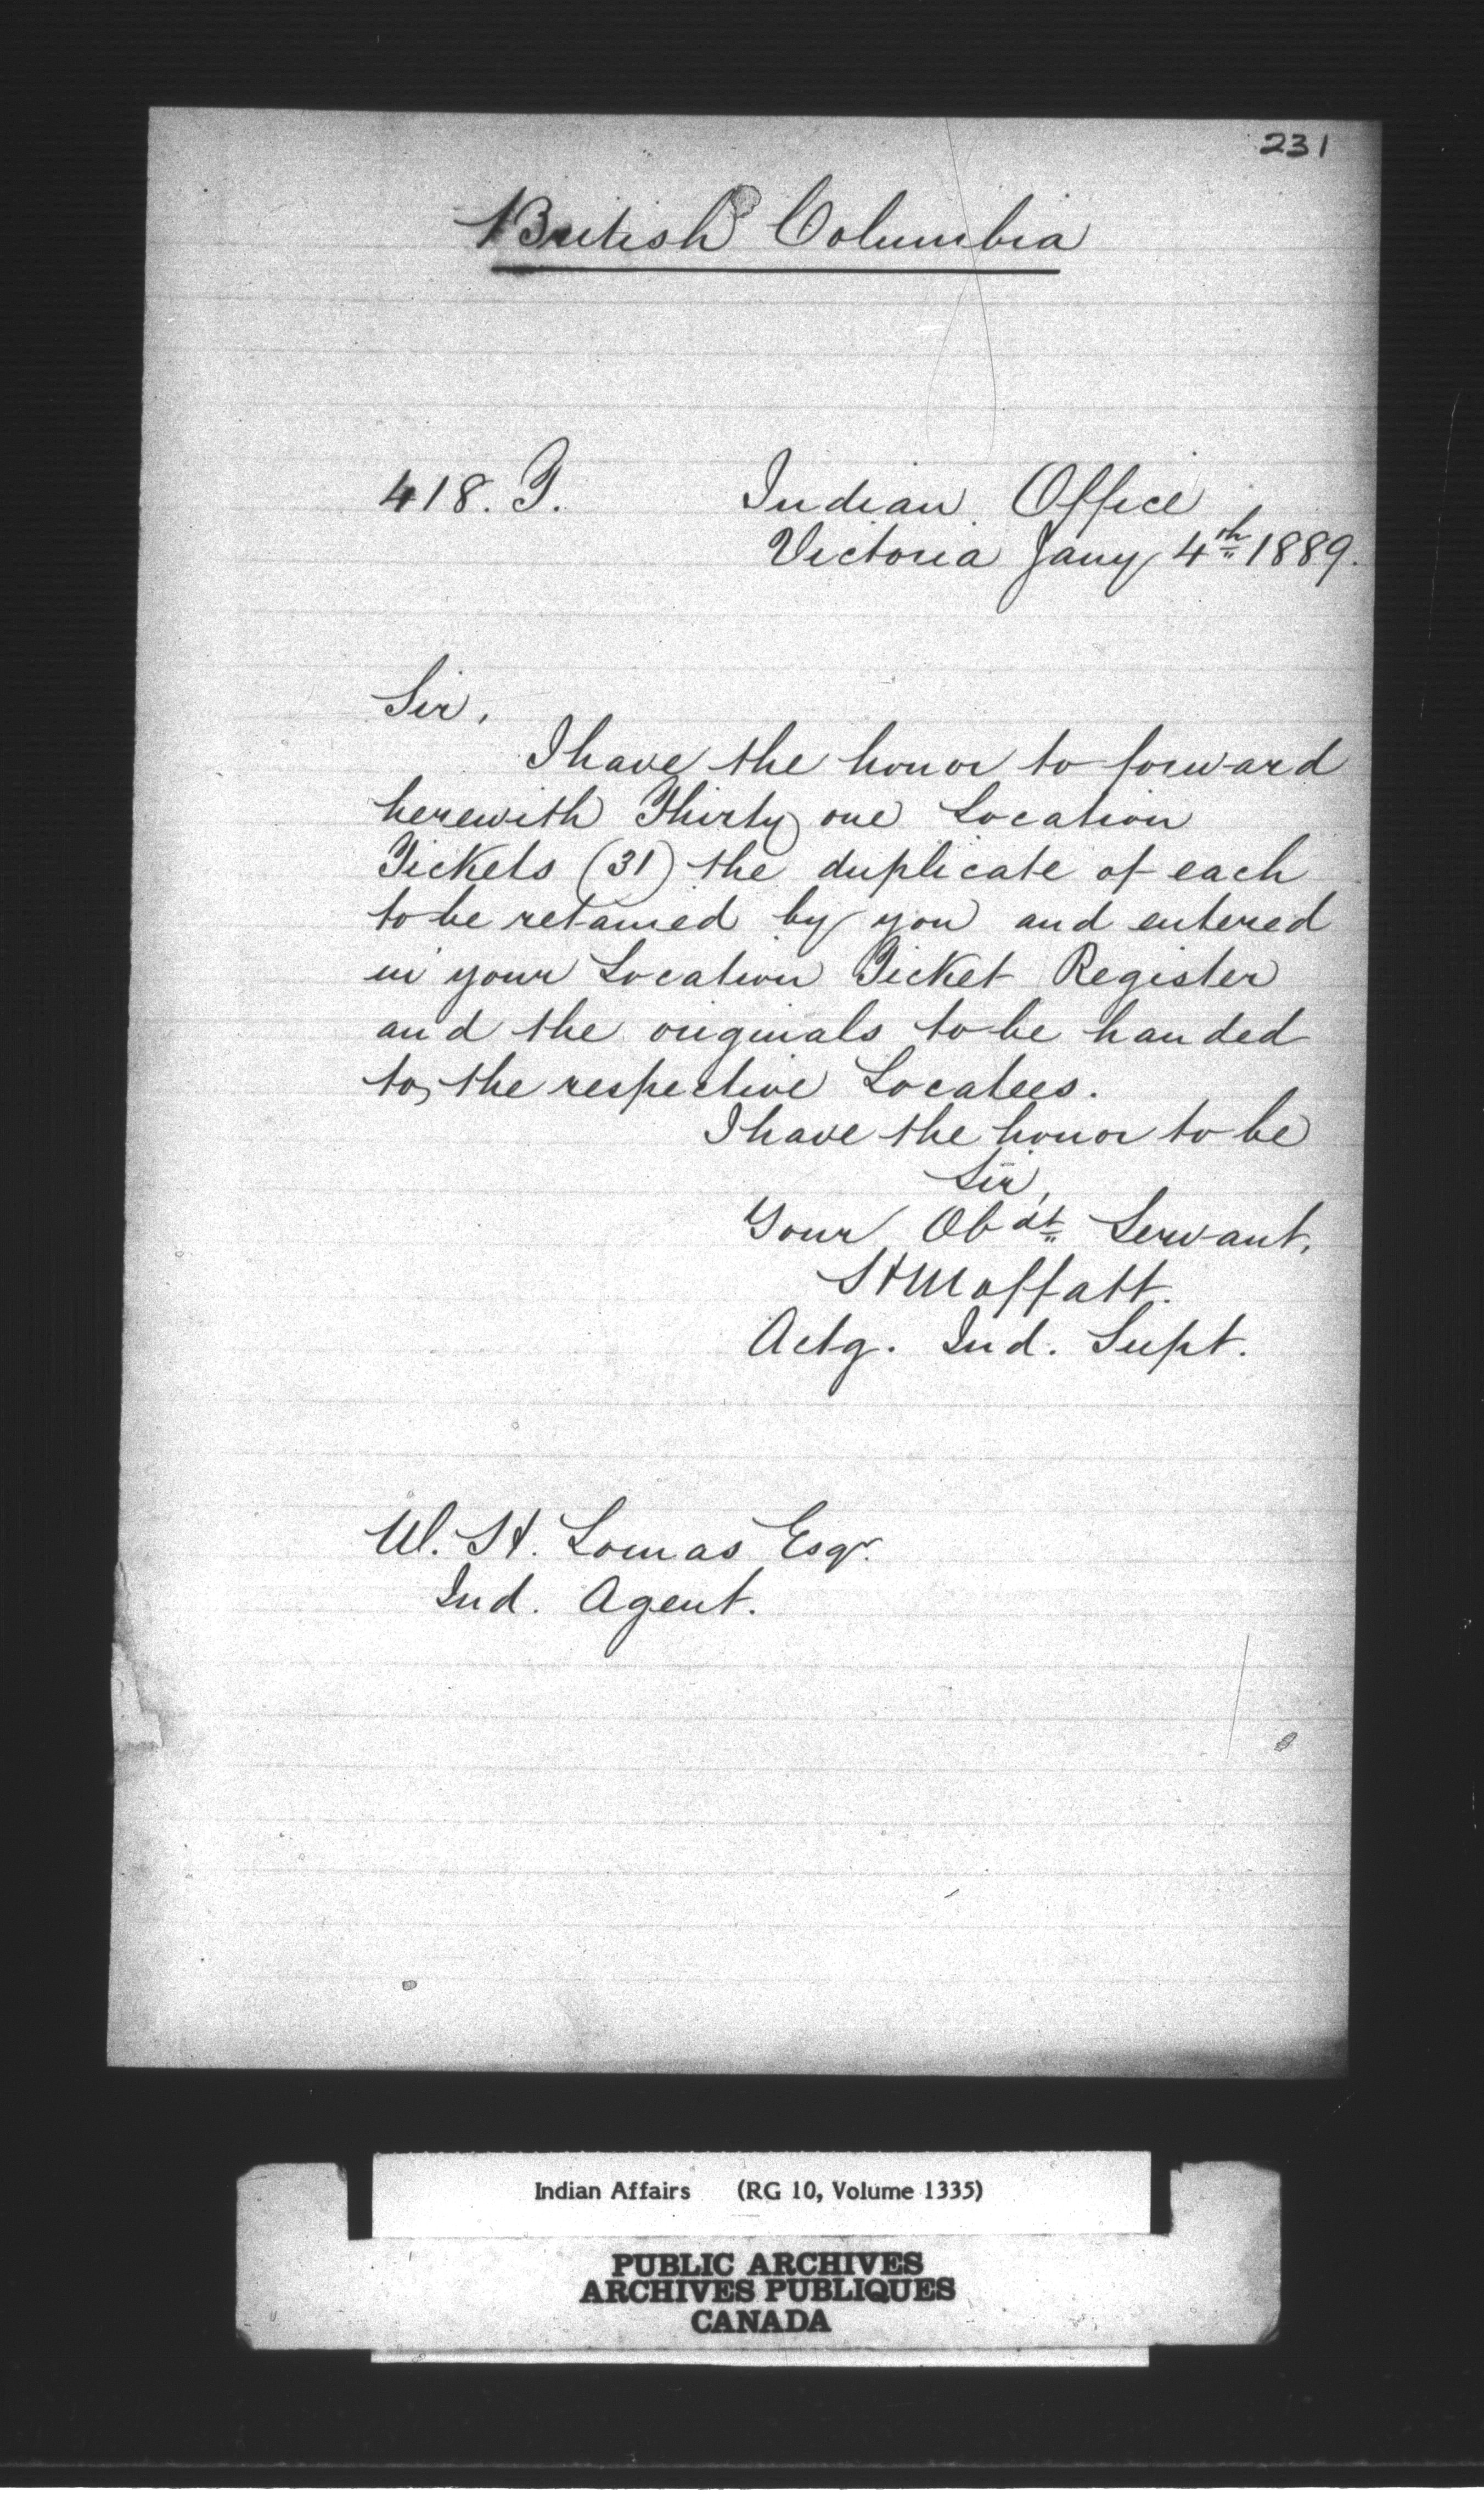 231
British Columbia
418. T. Indian Office
Victoria Jany 4th 1889.
Sir,
I have the honor to forward
herewith Thirty one Location
Tickets (31) the duplicate of each
to be retained by you and entered
in your Location Ticket Register
and the originals to be handed
to the respective Locatees.
I have the honor to be
Sir,
Your Obdt Servant,
H Moffatt.
Actg. Ind. Supt.
W. H. Lomas Esqr.
Ind. Agent.
Indian Affairs (RG 10, Volume 1335)
PUBLIC ARCHIVES
ARCHIVES PUBLIQUES
CANADA